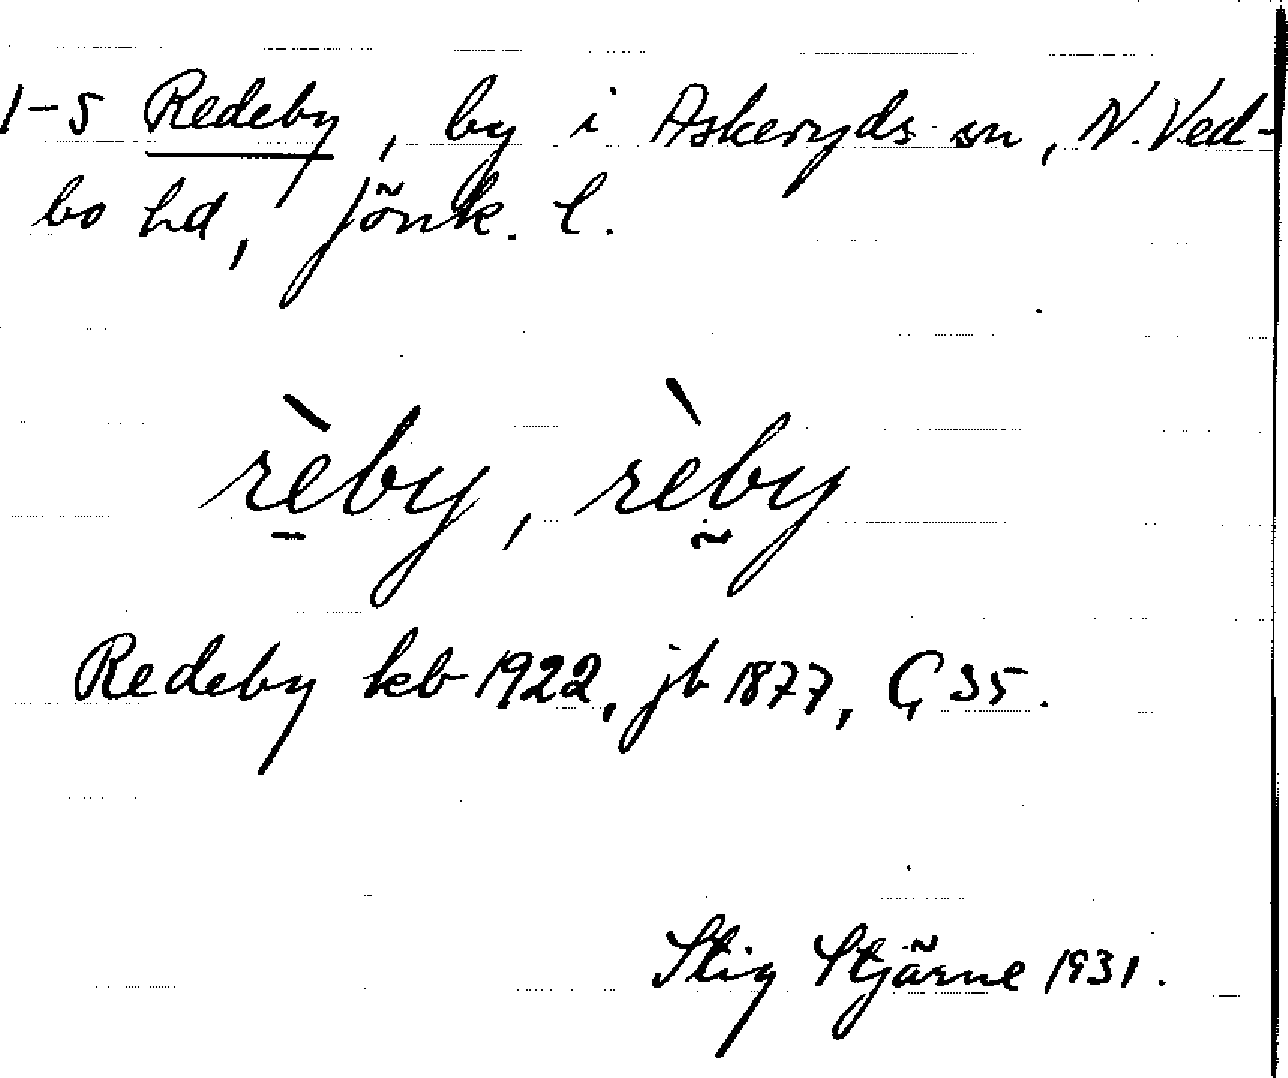 1-5 Redeby, by i Askeryds sn, N. Ved-
bo hd, Jönk. l.
rèby, rèby
Redeby kb 1922, jb 1877, G 35.
Stig Stjärne 1931.